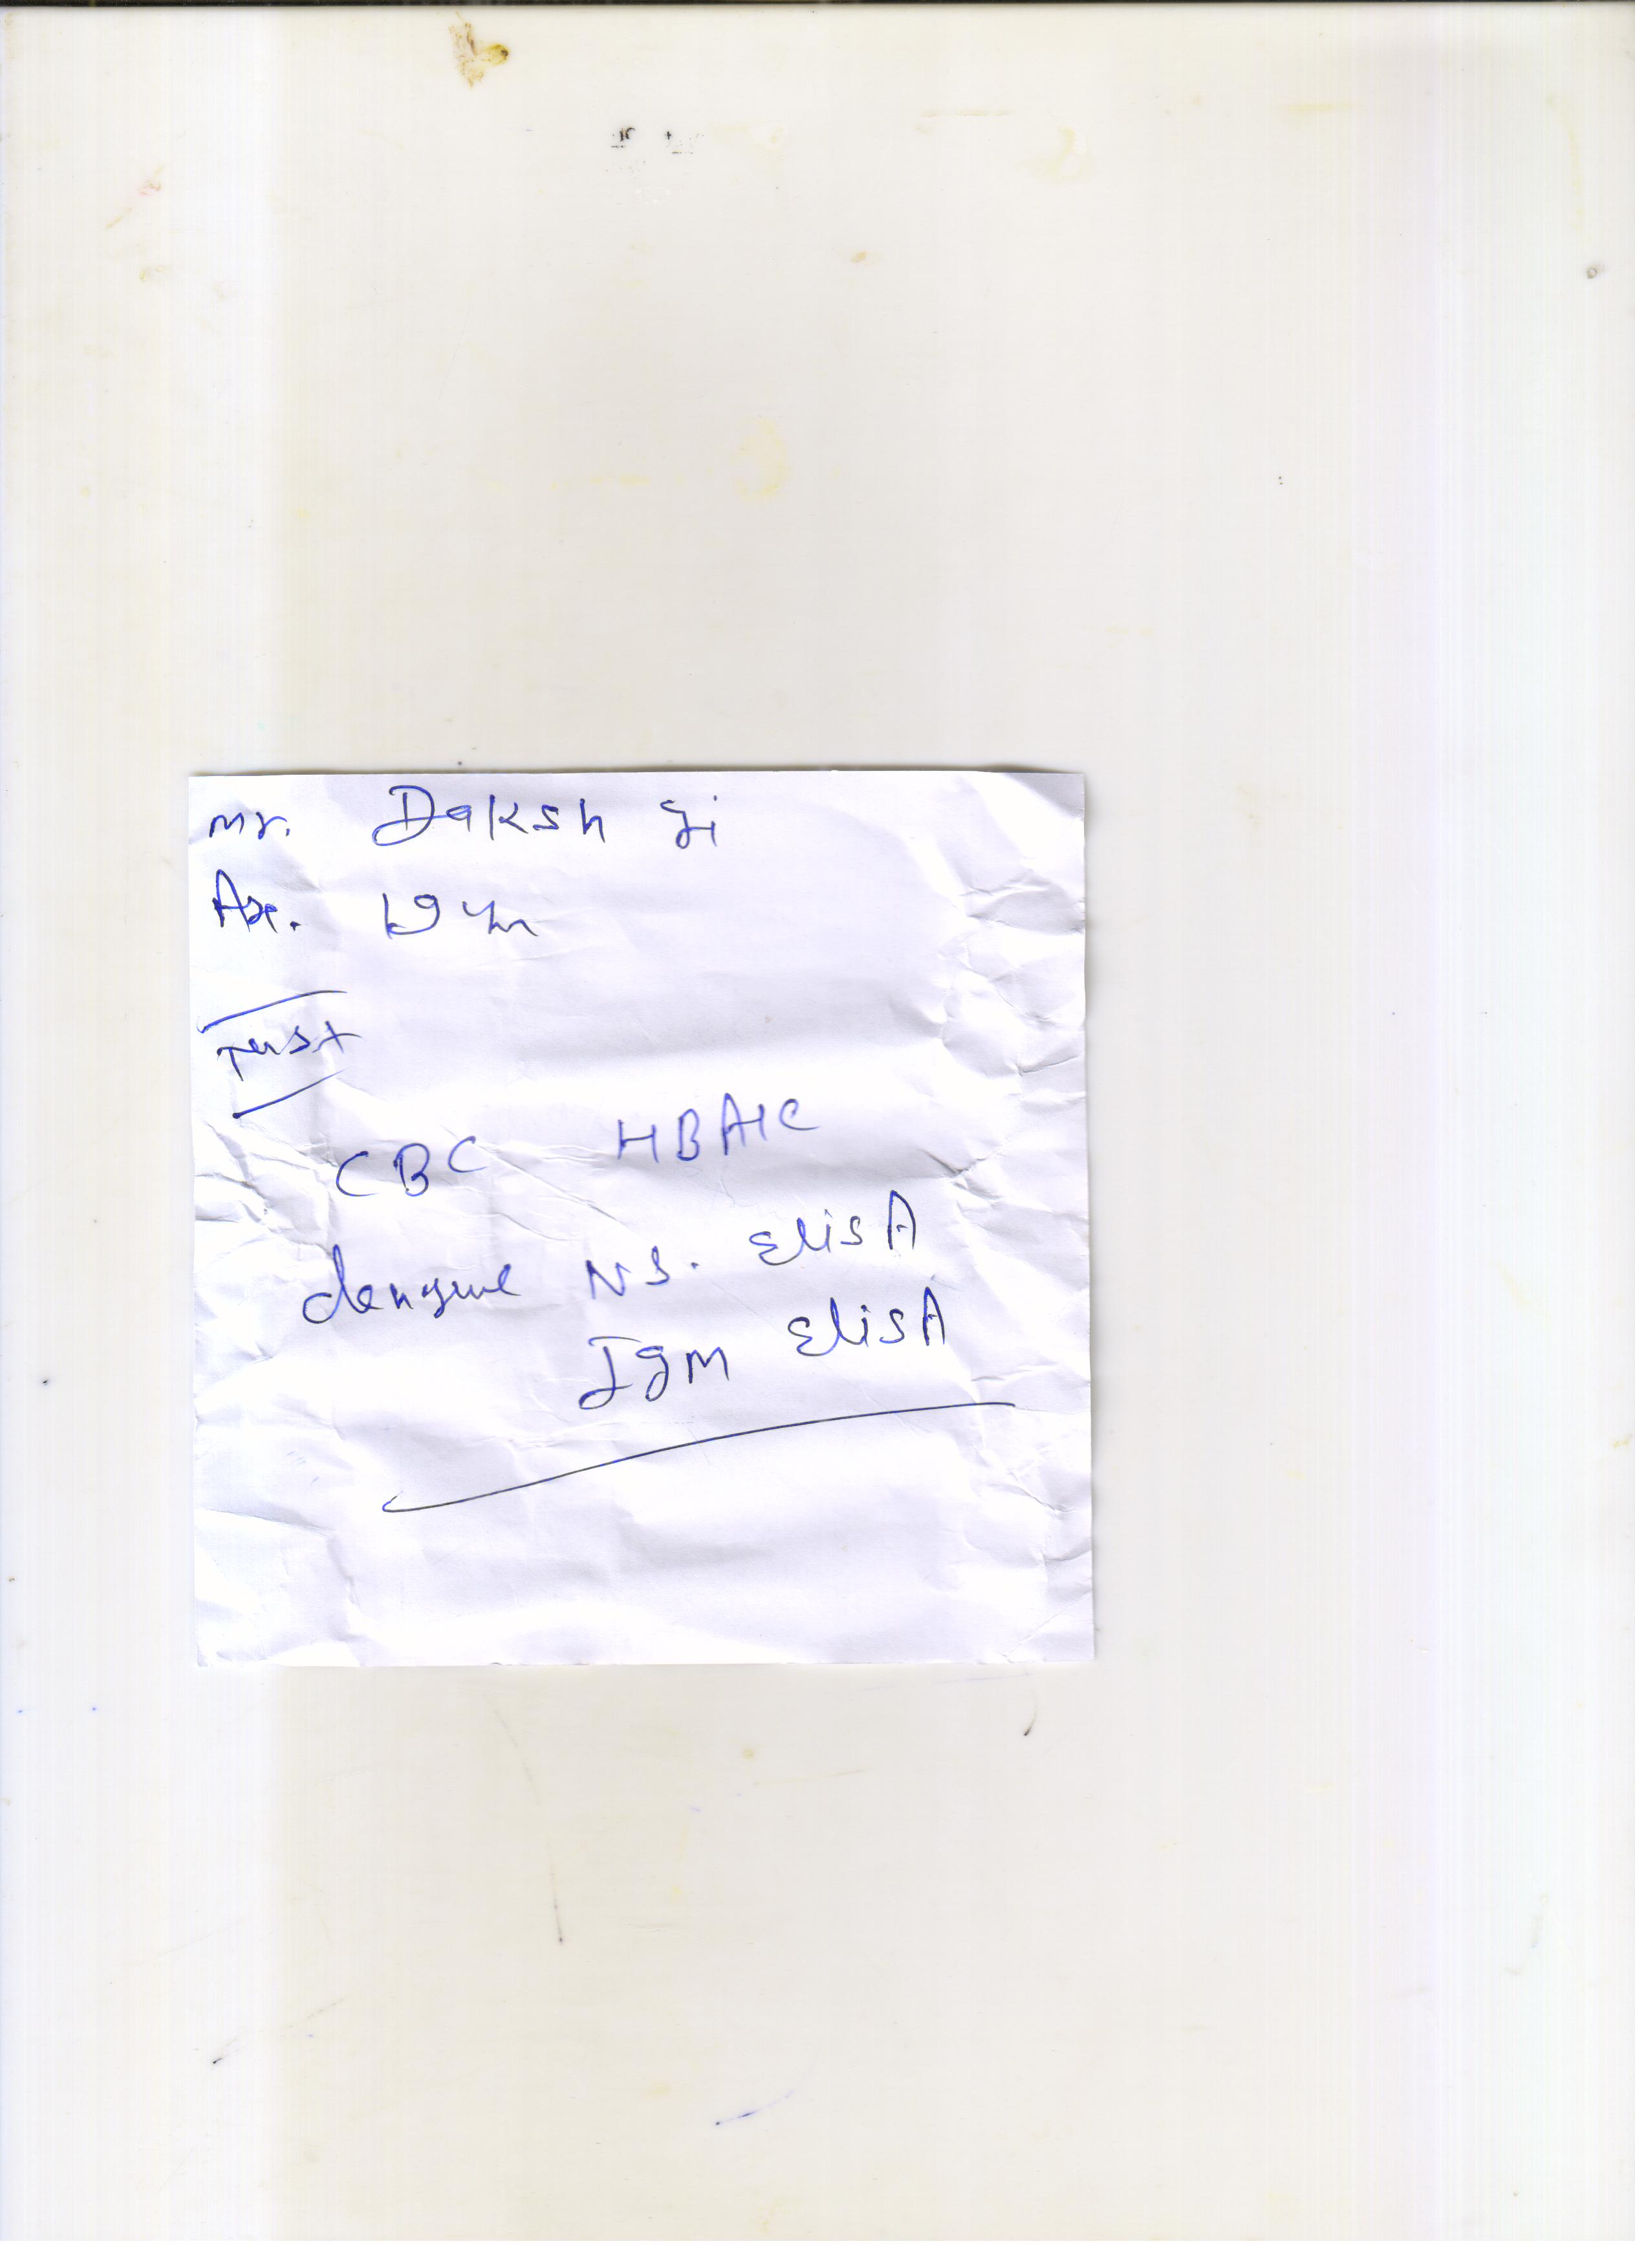 Mr. Daksh Ji
Age. 19 yr
Test
CBC HBA1C
dengue NS. ElisA
IgM ElisA